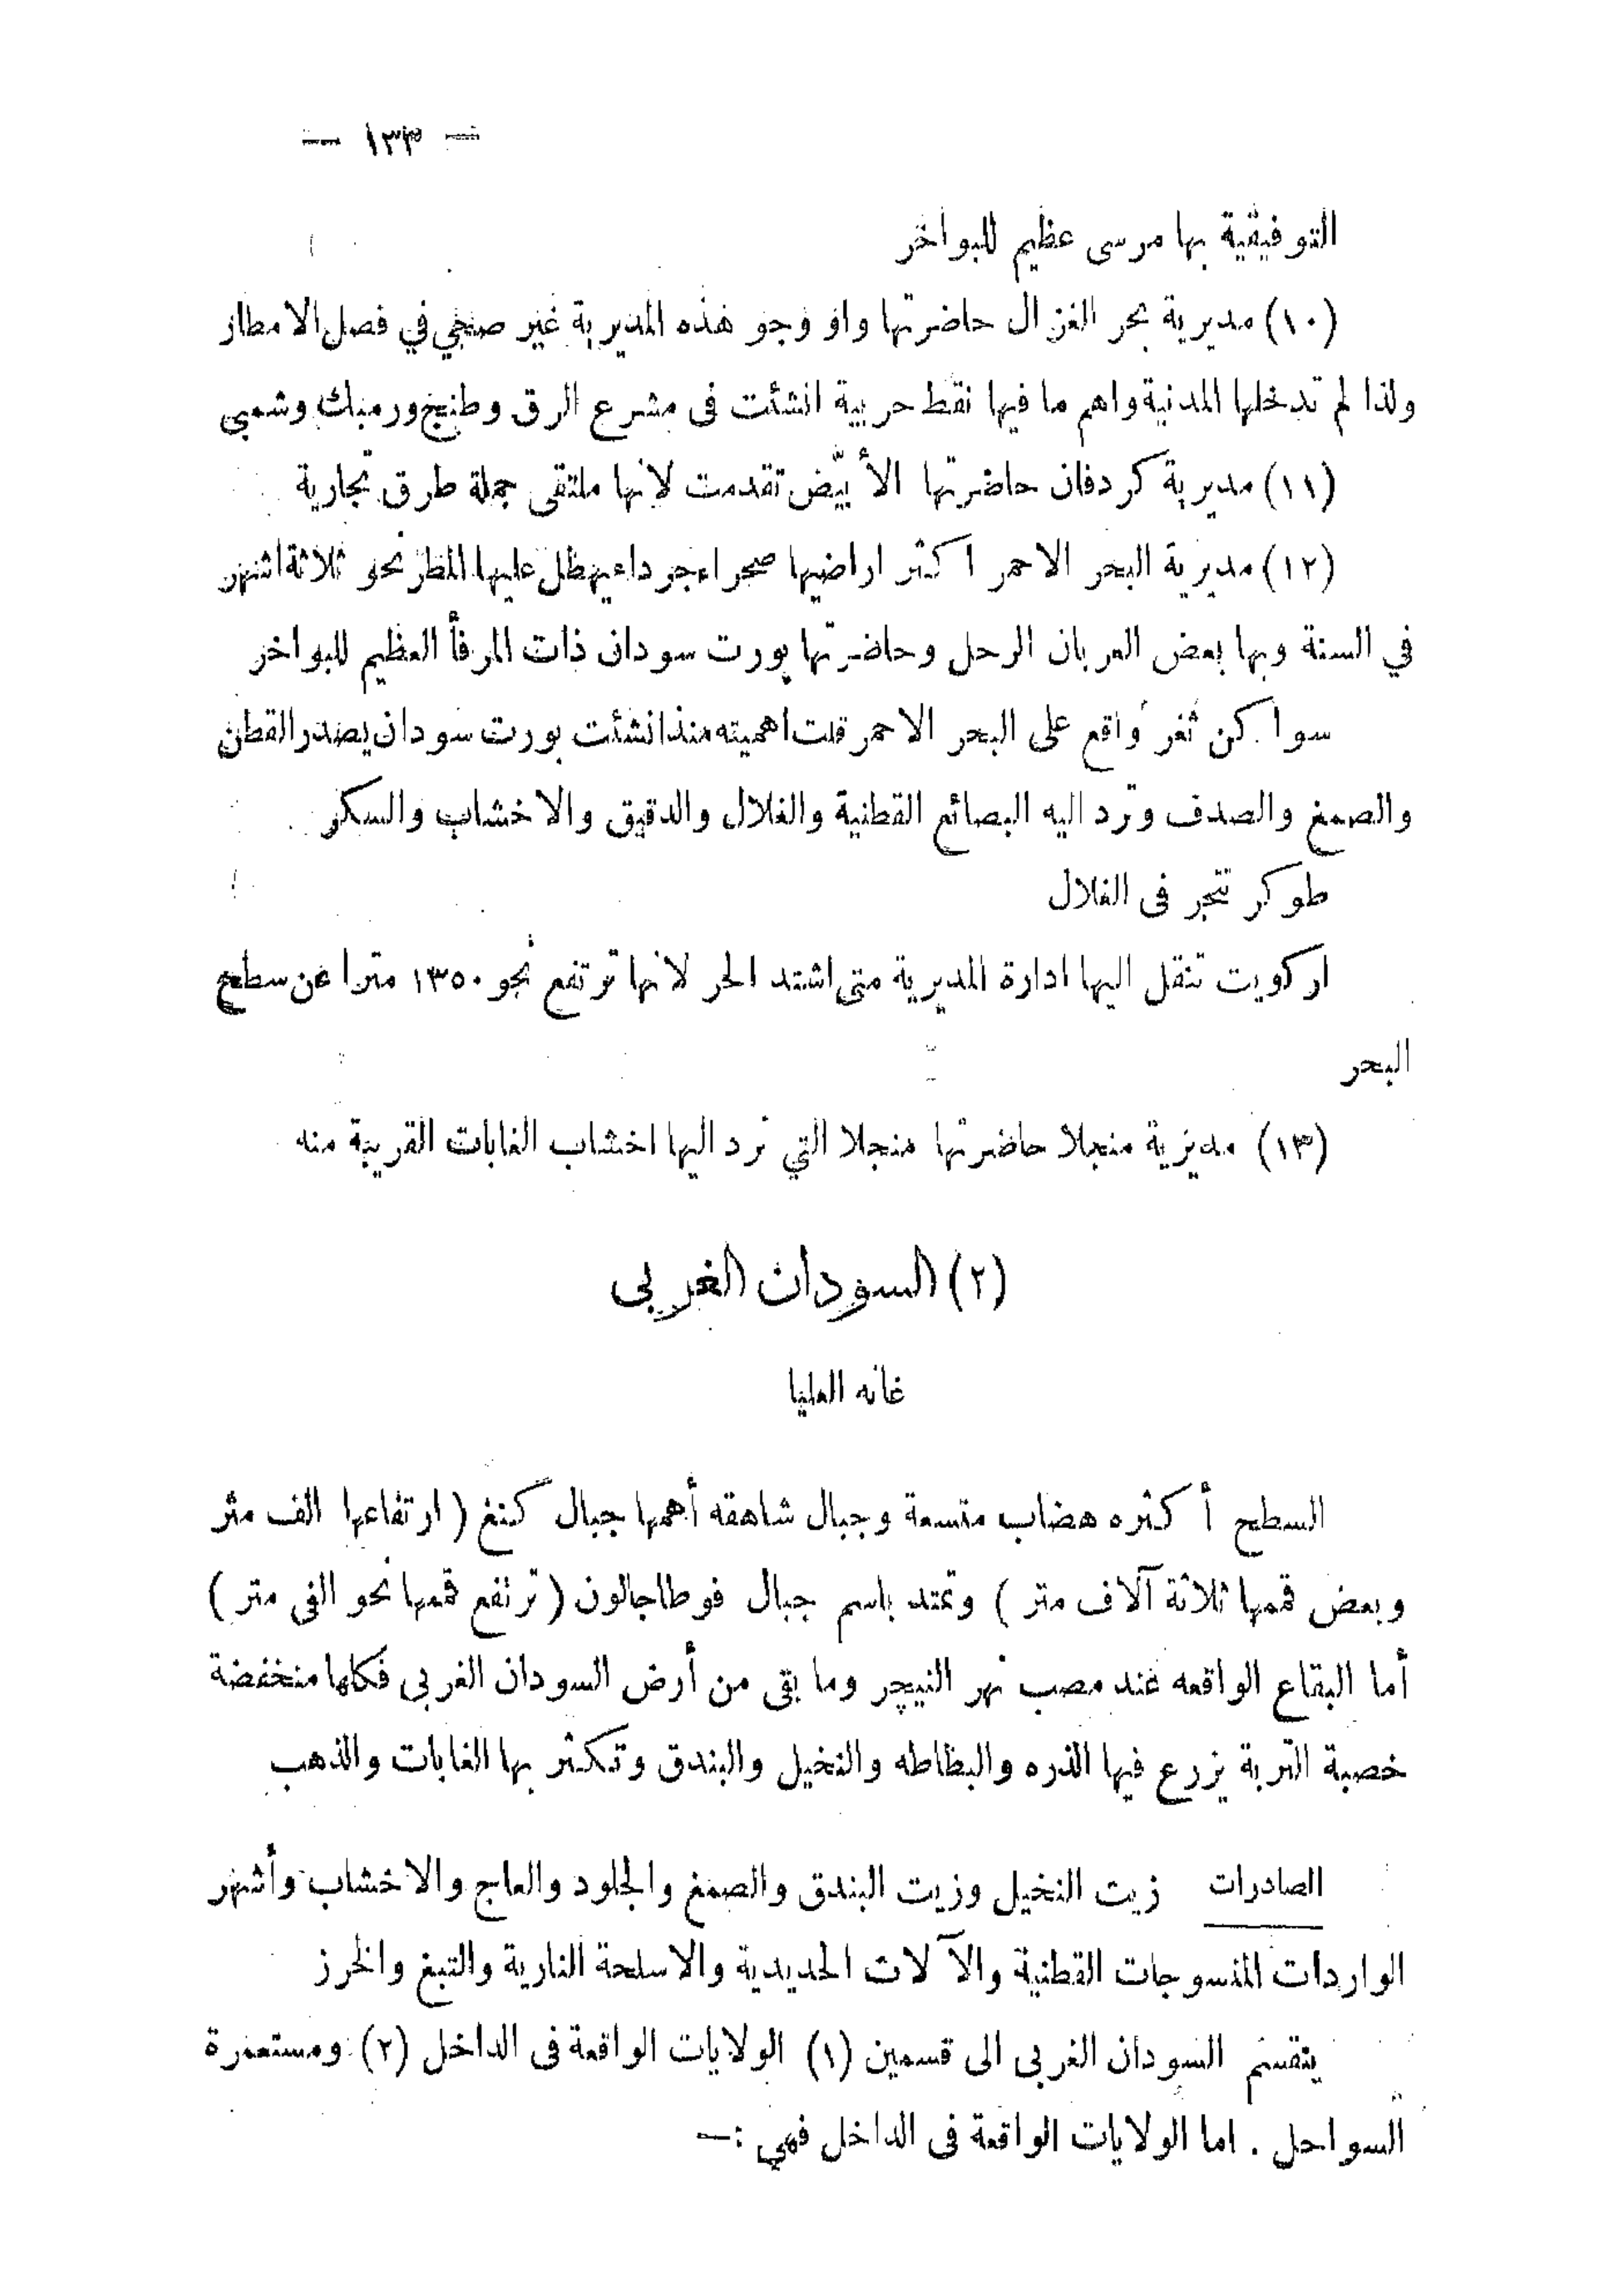 — ١٣٣ —
التوفيقية بها مرسى عظيم للبواخر
(١٠) مديرية بحر الغزال حاضرتها واو وجو هذه المديرية غير صحي في فصل الامطار
ولذا لم تدخلها المدنية واهم ما فيها نقط حربية انشئت فى مشرع الرق وطنبخ ورمبك وشمبى
(١١) مديرية كردفان حاضرتها الأُبيّض تقدمت لانها ملتقى جملة طرق تجارية
(١٢) مديرية البحر الاحمر اكثر اراضيها صحراء جرداء يهطل عليها المطر نحو ثلاثة اشهر
في السنة وبها بعض العربان الرحل وحاضرتها بورت سودان ذات المرفأ العظيم للبواخر
سواكن ثغر واقع على البحر الاحمر قلت اهميته منذ انشئت بورت سودان يصدر القطن
والصمغ والصدف وترد اليه البضائع القطنية والغلال والدقيق والاخشاب والسكر
طوكر تتجر فى الغلال
اركويت تنقل اليها ادارة المديرية متى اشتد الحر لانها ترتفع نحو ١٣٥٠ مترا عن سطح
البحر
(١٣) مديرية منجلا حاضرتها منجلا التي ترد اليها اخشاب الغابات القريبة منه
(٢) السودان الغربى
غانه العليا
السطح أكثره هضاب متسعة وجبال شاهقه أهمها جبال كنغ (ارتفاعها الف متر
وبعض قممها ثلاثة آلاف متر) وتمتد باسم جبال فوطاجالون (ترتفع قممها نحو الفى متر)
أما البقاع الواقعه عند مصب نهر النيچر وما بقى من أرض السودان الغربى فكلها منخفضة
خصبة التربة يزرع فيها الذره والبطاطه والنخيل والبندق وتكثر بها الغابات والذهب
الصادرات زيت النخيل وزيت البندق والصمغ والجلود والعاج والاخشاب وأشهر
الواردات المنسوجات القطنية والآلات الحديدية والاسلحة النارية والتبغ والخرز
ينقسم السودان الغربى الى قسمين (١) الولايات الواقعة فى الداخل (٢) ومستعمرة
السواحل . اما الولايات الواقعة فى الداخل فهي :—